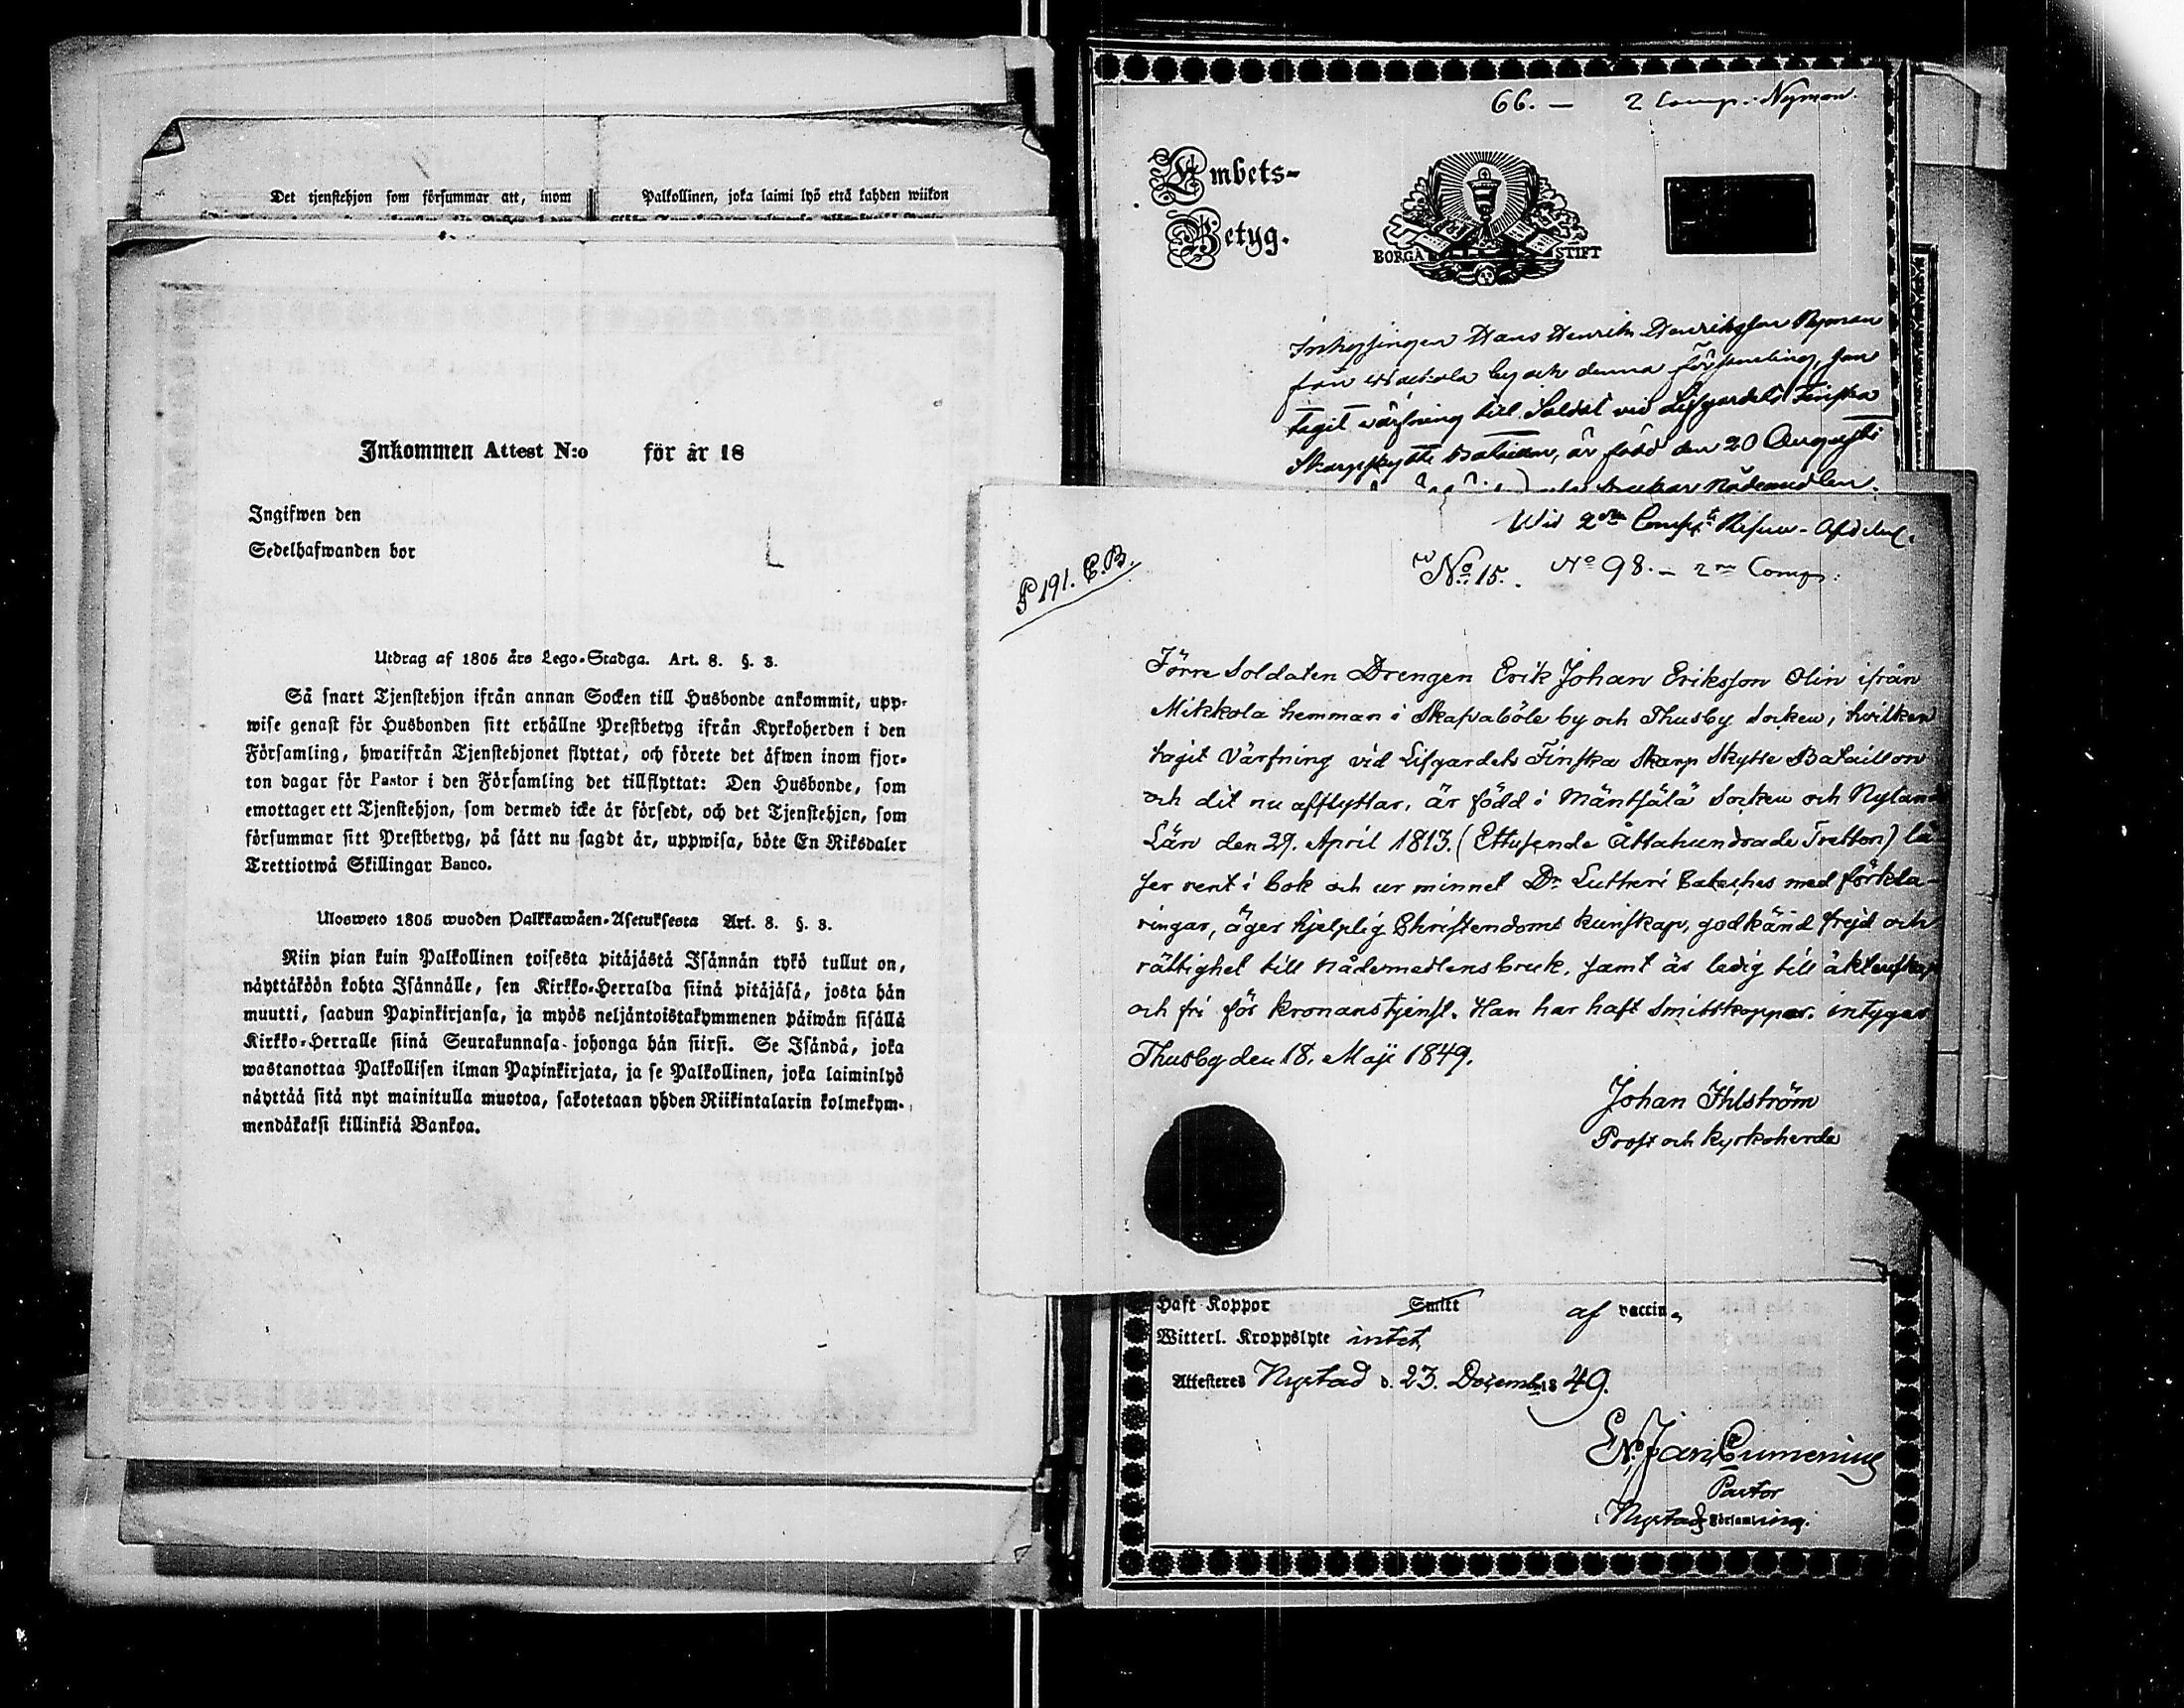 Det tjenstehjon som försummar att, inom
Palkollinen, joka laimi lyö että kahden wiikon
Inkommen Attest N:o för år 18
Ingifwen den
Sedelhafwanden bor
Utdrag af 1805 års Lego-Stadga. Art. 8. §. 3.
Så snart Tjenstehjon ifrån annan Socken till Husbonde ankommit, upp-
wise genast för Husbonden sitt erhållne Prestbetyg ifrån Kyrkoherden i den
Församling, hwarifrån Tjenstehjonet flyttat, och förete det äfwen inom fjor-
ton dagar för Pastor i den Församling det tillflyttat: Den Husbonde, som
emottager ett Tjenstehjon, som dermed icke är försedt, och det Tjenstehjon, som
försummar sitt Prestbetyg, på sätt nu sagdt är, uppwisa, böte En Riksdaler
Trettiotwå Skillingar Banco.
Ulosweto 1805 wuoden Palkkawäen-Asetuksesta Art. 8. §. 3.
Niin pian kuin Palkollinen toisesta pitäjästä Isännän tykö tullut on,
näyttäköön kohta Isännälle, sen Kirkko-Herralda siinä pitäjäsä, josta hän
muutti, saadun Papinkirjansa, ja myös neljäntoistakymmenen päiwän sisällä
Kirkko-Herralle siinä Seurakunnasa johonga hän siirsi. Se Isändä, joka
wastanottaa Palkollisen ilman Papinkirjata, ja se Palkollinen, joka laiminlyö
näyttää sitä nyt mainitulla muotoa, sakotetaan yhden Riikintalarin kolmekym-
mendäkaksi killinkiä Bankoa.
66. — 2 Comp. Nyman.
Embets-
Betyg.
BORGÅ STIFT
Inhysingen Hans Henrik Henriksson Nyman
från by och denna församling, som
tagit värfning till Soldat vid Lifgardets Finska
Skarpskytte Bataillon, är född den 20 Augusti
brukar Nådemedlen.
Wid 2dra Comps Reserv-Afdeln.
No 15. No 98. — 2ra Comp:
P 191. C.B.
Förre Soldaten Drengen Erik Johan Eriksson Olin ifrån
Mikkola hemman i Skafvaböle by och Thusby Socken, hvilken
tagit Värfning vid Lifgardets Finska Skarp Skytte Bataillon
och dit nu afflyttar, är född i Mäntsälä Socken och Nylands
Län den 29. April 1813. (Ettusende Åttahundrade Tretton) lä-
ser rent i bok och ur minnet Dr. Lutheri Cateches med förkla-
ringar, äger hjelplig Christendoms kunskap, godkänd frejd och
rättighet till nådemedlens bruk, samt är ledig till äktenskap
och fri för kronans tjenst. Han har haft Smittkoppor. intygar
Thusby den 18. Maji 1849.
Johan Ihlström
Prost och kyrkoherde
Haft Koppor Smitt af vaccin.
Witterl. Kroppslyte intet
Attesteres Nystad d. 23. Decemb. 18 49.
Pastor
i Nystads Församling.